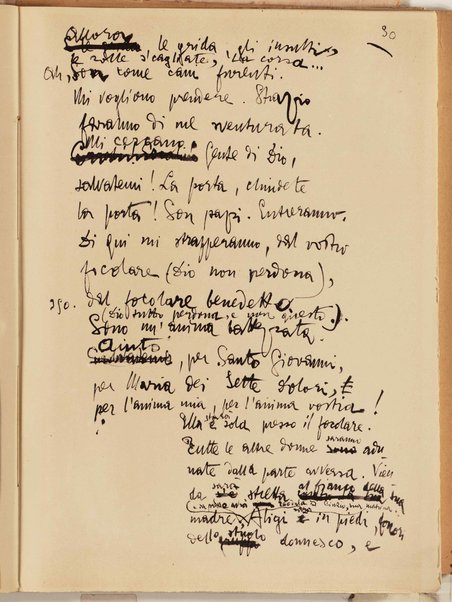 30
Allora, le grida, gli insulti,
e zolle scagliate, la corsa...
Oh, son come cani furenti.
Mi vogliono prendere. Strazio
faranno di me sventurata.
Mi cercano. Gente di Dio,
salvatemi! La porta, chiudete
la porta! Son pazzi. Entreranno.
Di qui mi strapperanno, dal vostro
focolare (Dio non perdona),
290. dal focolare benedetto
(Dio tutto perdona, e non questo).
Sono un'anima battezzata.
Aiuto, per Santo Giovanni,
per Maria dei Sette Dolori,
per l'anima mia, per l'anima vostra!
Ella è sola presso il focolare.
Tutte le altre donne saranno adu
nate dalla parte avversa. Vien
da sarà stretta alla sua
madre. Aligi è in piedi, fuori
dello stuolo donnesco, e